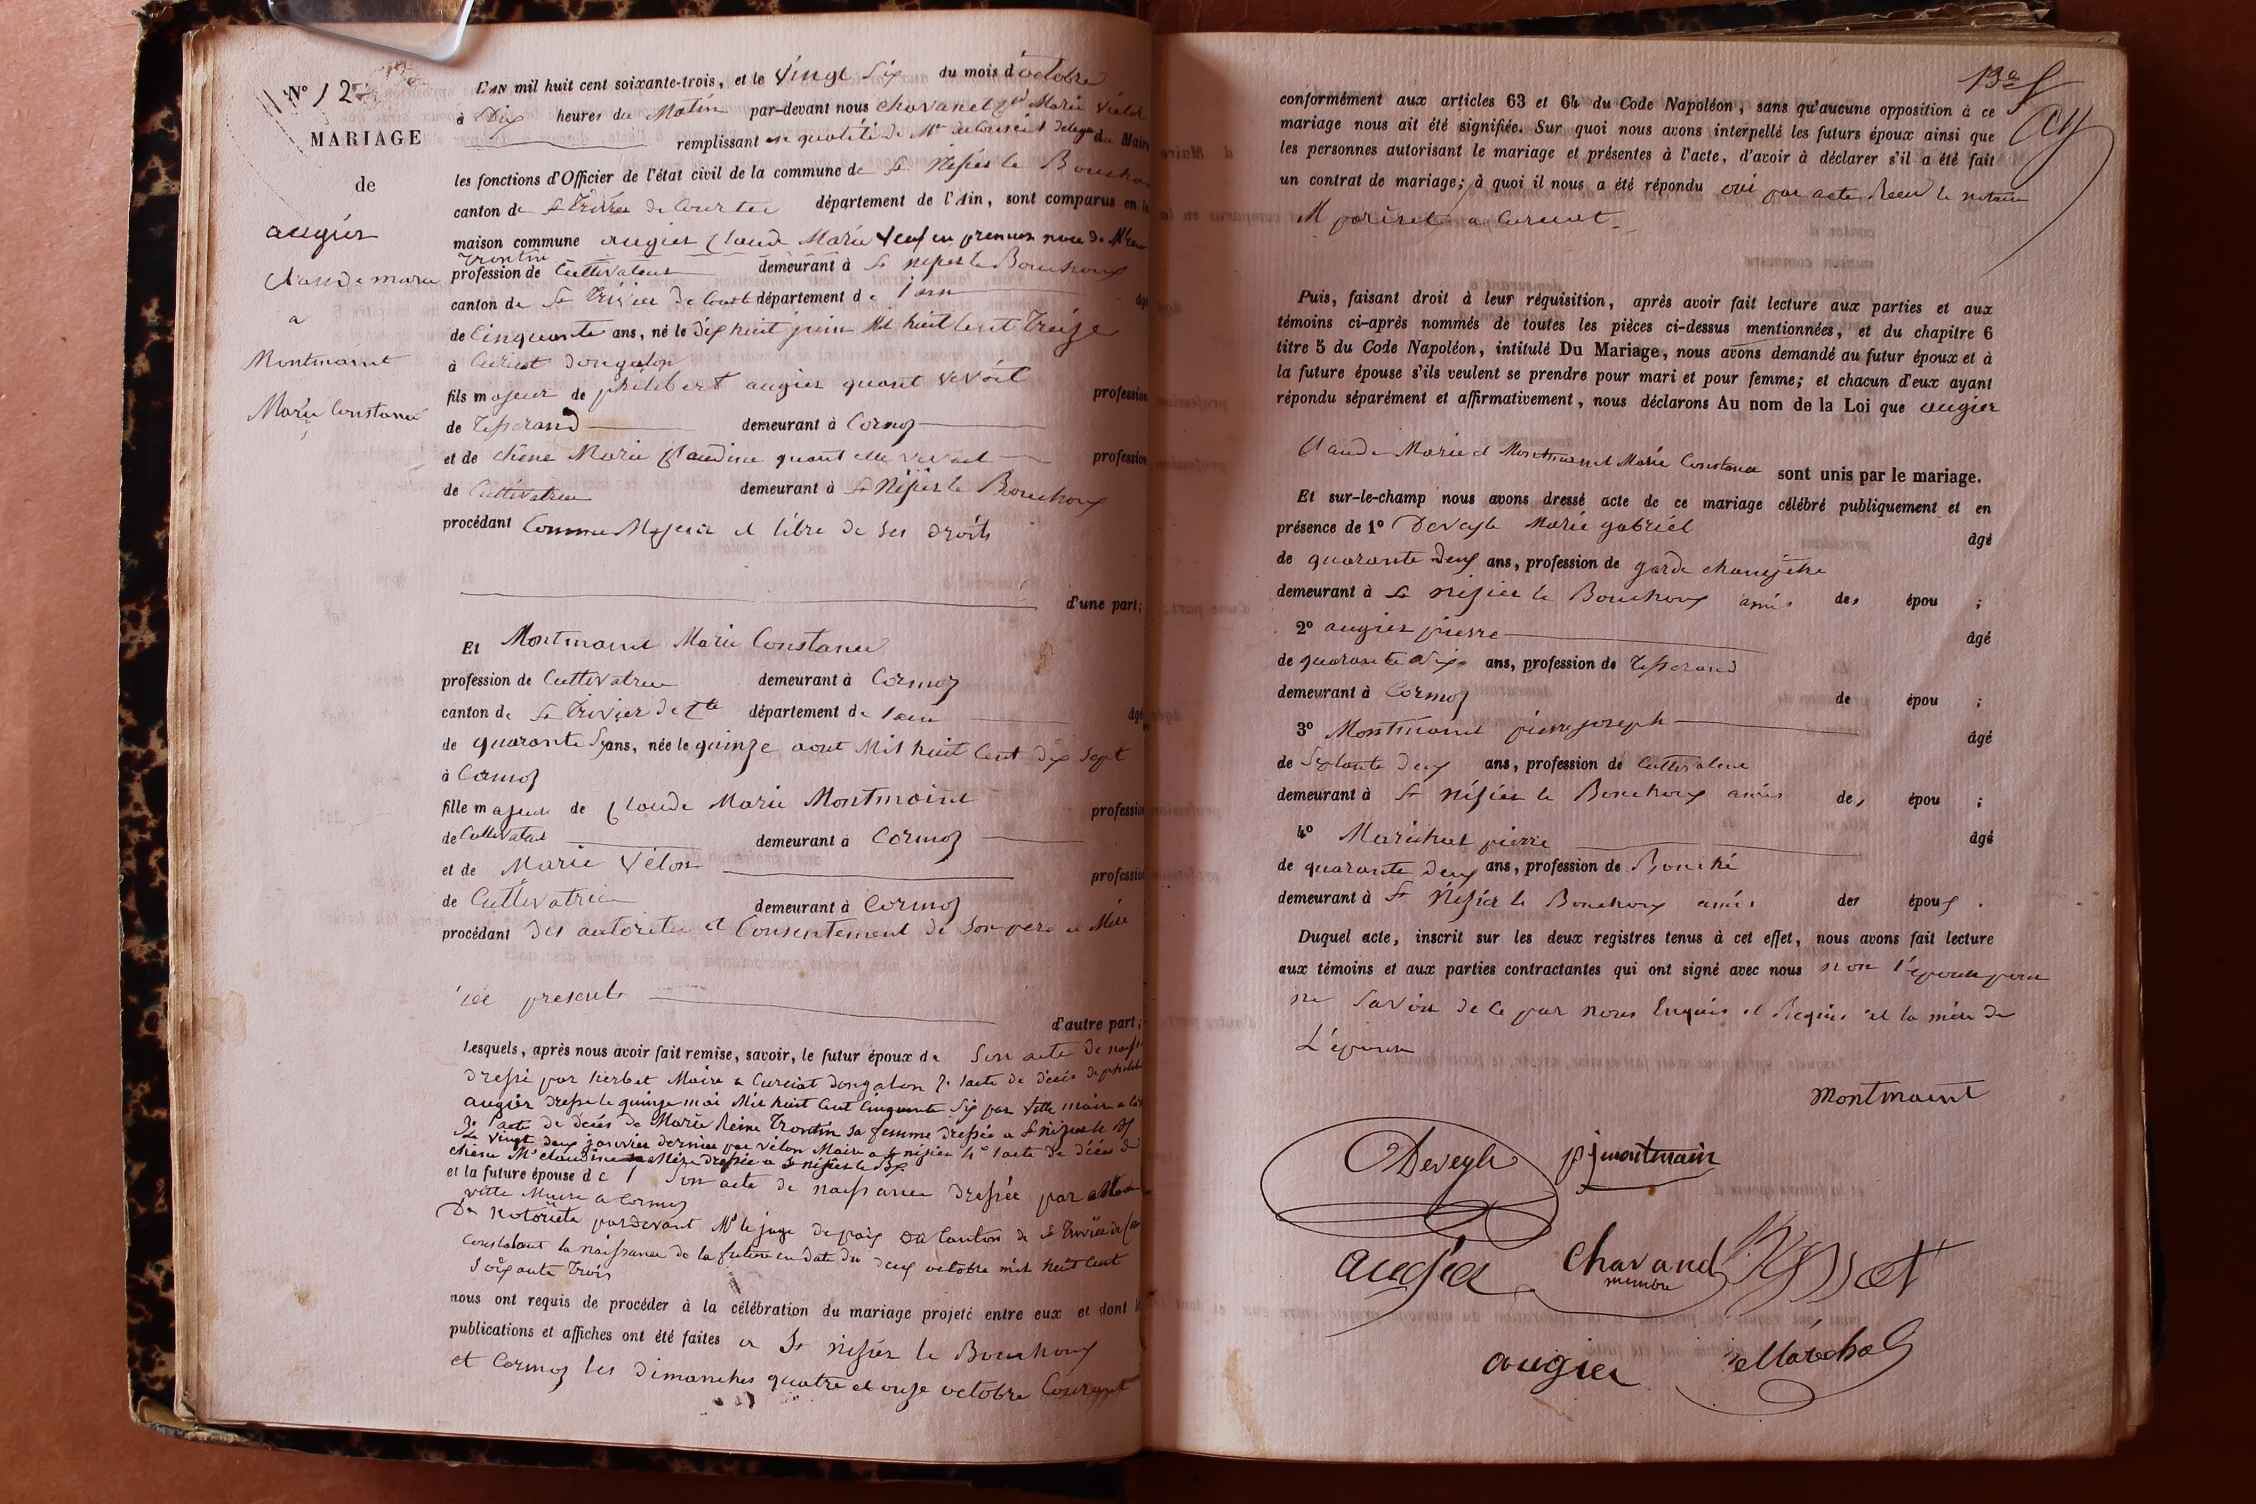 N° 12
MARIAGE
de
augier
Claude marie
a
Montmaint
Marie Constance
L'AN mil huit cent soixante-trois, et le vingt Six du mois d'octobre
à Dix heures du Matin par-devant nous Chavanel Marie Victor
remplissant en qualité de Mre du Conseil délégué du Maire
les fonctions d'Officier de l'état civil de la commune de St Nizier le Bouchoux
canton de St Trivier de Courtes département de l'Ain, sont comparus en la
maison commune augier Claude Marie Veuf en premier noce de Mie Reine
Trontin
profession de Cultivateur demeurant à St nizier le Bouchoux
canton de St Trivier de Court département de l'ain âgé
de Cinquante ans, né le Dix huit juin Mil huit Cent Treize
à Curciat dongalon
fils majeur de philibert augier quant vivoit profession
de Tisserand demeurant à Cormoz
et de chêne Marie Claudine quant elle vivoit profession
de Cultivatrice demeurant à St Nizier le Bouchoux
procédant Comme Majeur et libre de Ses droits
d'une part;
Et Montmaint Marie Constance
profession de Cultivatrice demeurant à Cormoz
canton de St Trivier de Cte département de l'ain âgé
de quarante Six ans, née le quinze aout Mil huit Cent dix Sept
à Cormoz
fille majeure de Claude Marie Montmaint profession
de Cultivateur demeurant à Cormoz
et de Marie Vélon profession
de Cultivatrice demeurant à Cormoz
procédant des autorités et Consentement de Son père et Mère
ici présents
d'autre part;
Lesquels, après nous avoir fait remise, savoir, le futur époux de Son acte de naiss
dressé par herbet Maire a Curciat dongalon 2° l'acte de décès de philibert
augier dressé le quinze mai Mil huit Cent Cinquante Six par Vitte maire a
3° l'acte de décès de Marie Reine Trontin sa femme dressée a St nizier le Bx
Le Vingt deux janvier dernier par Vélon Maire a St nizier 4° l'acte de décès de
chêne Mie claudine sa Mère dressée a St nizier le Bx
et la future épouse de Son acte de naissance dressée par
Vitte Maire a Cormoz
De Notoriété pardevant Mr le juge de paix du Canton de St Trivier de
Constatant la naissance de la future en date du deux octobre mil huit Cent
Soixante Trois
nous ont requis de procéder à la célébration du mariage projeté entre eux et dont les
publications et affiches ont été faites a St nizier le Bouchoux
et Cormoz les Dimanches quatre et onze octobre Courant
conformément aux articles 63 et 64 du Code Napoléon, sans qu'aucune opposition à ce
mariage nous ait été signifiée. Sur quoi nous avons interpellé les futurs époux ainsi que
les personnes autorisant le mariage et présentes à l'acte, d'avoir à déclarer s'il a été fait
un contrat de mariage; à quoi il nous a été répondu oui par acte Reçu le notaire
M poriset a Curciat
Puis, faisant droit à leur réquisition, après avoir fait lecture aux parties et aux
témoins ci-après nommés de toutes les pièces ci-dessus mentionnées, et du chapitre 6
titre 5 du Code Napoléon, intitulé Du Mariage, nous avons demandé au futur époux et à
la future épouse s'ils veulent se prendre pour mari et pour femme; et chacun d'eux ayant
répondu séparément et affirmativement, nous déclarons Au nom de la Loi que augier
Claude Marie et Montmaint Marie Constance sont unis par le mariage.
Et sur-le-champ nous avons dressé acte de ce mariage célébré publiquement et en
présence de 1° Deveyle Marie gabriel âgé
de quarante Deux ans, profession de garde champêtre
demeurant à St nizier le Bouchoux amis des épou ;
2° augier pierre âgé
de quarante dix ans, profession de Tisserand
demeurant à Cormoz de épou ;
3° Montmaint pierre joseph âgé
de Soixante deux ans, profession de Cultivateur
demeurant à St nizier le Bouchoux amis des épou ;
4° Maréchal pierre âgé
de quarante deux ans, profession de Bouché
demeurant à St Nizier le Bouchoux amis des époux .
Duquel acte, inscrit sur les deux registres tenus à cet effet, nous avons fait lecture
aux témoins et aux parties contractantes qui ont signé avec nous non l'épouse pour
ne Savoir de ce par nous Enquis et Requis et la mère de
L'épouse
Montmaint
Deveyle
pjmontmain
augier
Chavanel
membre
augier
Maréchal